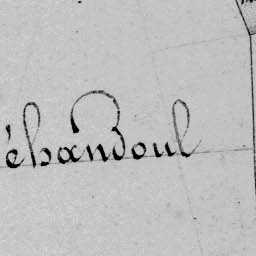 éhandoul